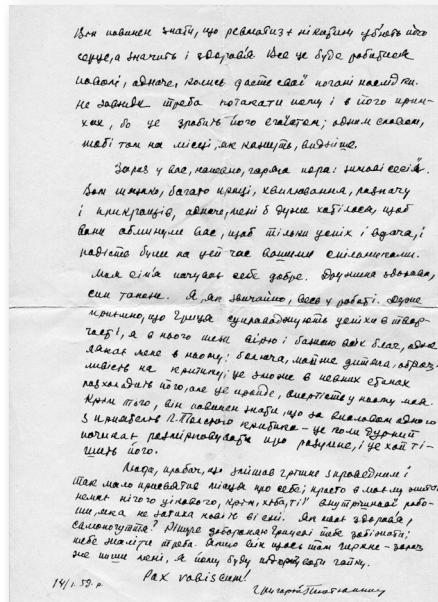 Він повинен знати, що ревматизм + нікотин уб'ють його
серце, а значить і здоров'я. Все це буде робитися
поволі, одначе, колись дасть свої погані наслідки.
Не завжди треба потакати йому і в його прим-
хах, бо це зробить його егоїстом; одним словом,
тобі там на місці, як кажуть, видніше.
Зараз у вас, напевно, гаряча пора: зимові сесії.
Вам тяжко, багато праці, хвилювання, розпачу
і прикрощів, одначе, мені б дуже хотілося, щоб
вони обминули вас, щоб тільки успіх і вдача, і
радість були на цей час вашими спільниками.
Моя сім'я почуває себе добре. Дружина здорова,
син також. Я, як звичайно, весь у роботі. Дуже
приємно, що Гриця супроводжують успіхи в твор-
чості, я в нього теж вірю і бажаю всіх благ, одне
лякає мене в ньому: болюча, майже дитяча, образ-
ливість на критику; це може в певних станах
розхолодить його, але це пройде,
Крім того, він повинен знати що за висловом одного
з приятелів Л. Толстого критика – це коли дурний
починає розмірковувати про розумне, і це хай ті-
шить його.
Надю, пробач, що змішав грішне з праведним і
так мало присвятив місця про себе; просто в моєму житті
немає нічого цікавого, крім, хіба, тії внутрішньої робо-
ти, яка не затиха навіть ві сні. Як твоє здоров'я,
самопочуття? Вперше забороняю Грицеві тебе забіжати;
тебе жаліти треба. Якщо він щось там утне – зараз
же пиши мені, я йому буду
Pax vobiscum!
14/I. 59 р.
Григорій Тютюнник